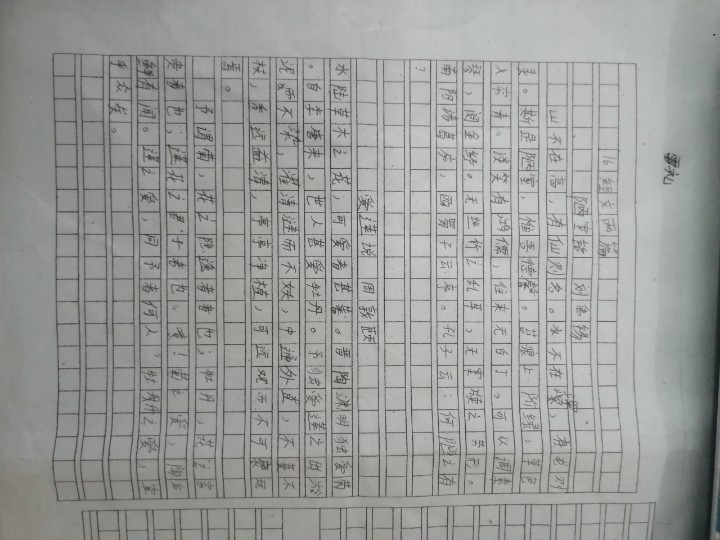 16 短文两篇
陋室铭 刘禹锡
山不在高,有仙则名。水不在深,有龙则
灵。斯是陋室,惟吾德馨。苔痕上阶绿,草色
入帘青。谈笑有鸿儒,往来无白丁。可以调素
琴,阅金经。无丝竹之乱耳,无案牍之劳形。
南阳诸葛庐,西蜀子云亭。孔子云:何陋之有
?
爱莲说 周敦颐
水陆草木之花,可爱者甚蕃。晋陶渊明独爱菊
。自李唐来,世人甚爱牡丹。予独爱莲之出淤
泥而不染,濯清涟而不妖,中通外直,不蔓不
枝,香远益清,亭亭净植,可远观而不可亵玩
焉。
予谓菊,花之隐逸者者也;牡丹,花之富
贵者也;莲花之君子者也。噫!菊之爱,陶后
鲜有闻。莲之爱,同予者何人?牡丹之爱,宜
乎众矣。